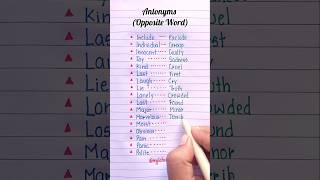 Antonyms
(Opposite Word)
Include ...... Exclude
Individual ... Group
Innocent ..... Guilty
Joy ...... Sadness
Kind ...... Cruel
Last ...... First
Laugh ...... Cry
Lie ...... Truth
Lonely ...... Crowded
Lost ...... Found
Major ...... Minor
Marvelous ... Terrib
Moist ......
Obvious ......
Pain ......
Panic ......
Polite ......